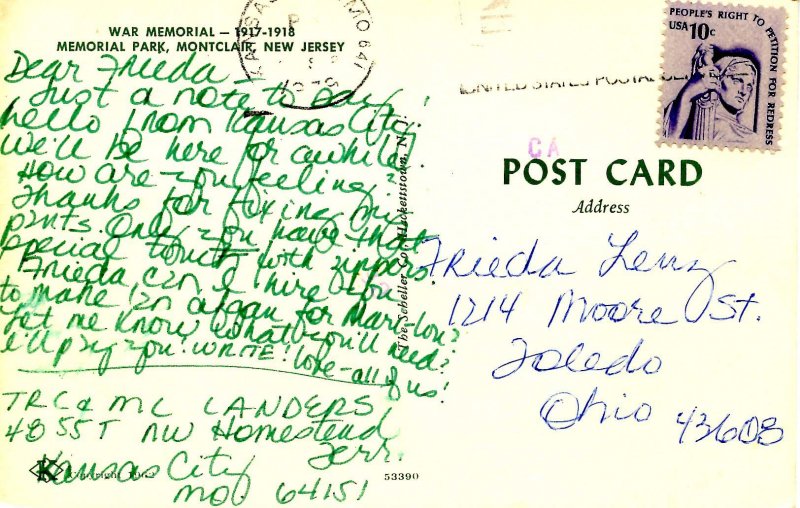 WAR MEMORIAL — 1917-1918
MEMORIAL PARK, MONTCLAIR, NEW JERSEY
Dear Frieda —
Just a note to say
hello from Kansas City.
We'll be here for awhile!
How are you feeling?
Thanks for fixing my
pants. Only you have that
special touch with zippers!
Frieda, can I hire you
to make an afgan for Mari-Lou?
Let me know what you'll need?
I'll pay you! WRITE! Love - all of us!
TRC & MC LANDERS
4855T NW Homestead
Terr.
Kansas City
MO. 64151
Copyright
K
53390
The Scheller Co., Hackettstown, N.J.
KANSAS MO 641
PEOPLE'S RIGHT TO PETITION FOR REDRESS
USA 10c
UNITED STATES POSTAL
CA
POST CARD
Address
Frieda Lenz
1214 Moore St.
Toledo
Ohio 43608